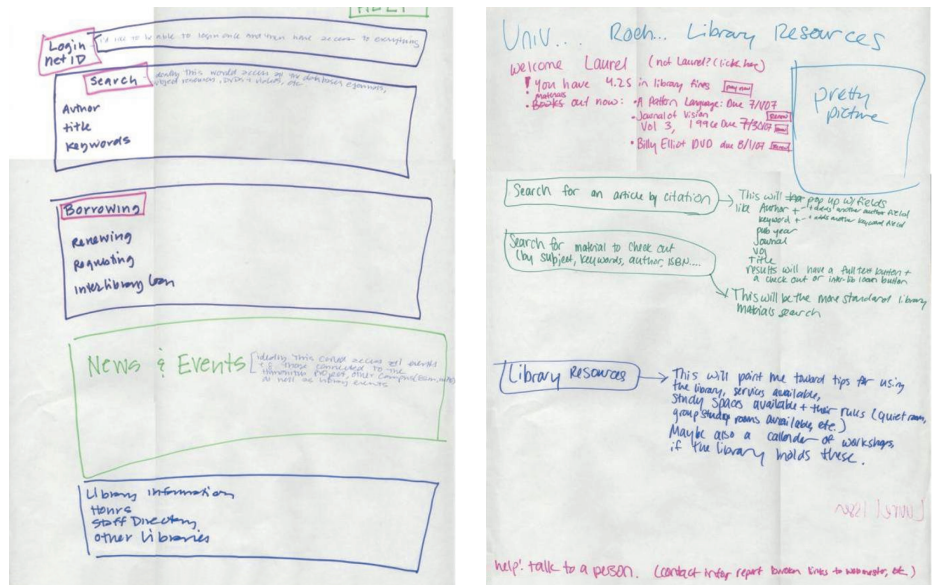 HELP
Login
net ID
I'd like to be able to login once and then have access to everything
Search
ideally this would access all the databases
reserves, DVDs + videos, etc
Author
title
Keywords
Borrowing
Renewing
Requesting
Interlibrary Loan
News & Events
ideally this could access all events
those connected to the
Humanities Project, other campus
as well as library events
Library information
Hours
Staff Directory
other Libraries
Univ... Roch... Library Resources
Welcome Laurel (not Laurel? Click here)
! You have 4.25 in library fines pay now
materials
• Books out now: • A Pattern Language: Due 7/1/07
• Journal of Vision renew
Vol 3, 1996 Due 7/30/07
• Billy Elliot DVD due 8/1/07
pretty
picture
Search for an article by citation
This will pop up w/ fields
like Author + adds another author field
keyword + adds another keyword field
pub year
Journal
vol
Title
results will have a full text button +
a check out or inter-lib loan button
Search for material to check out
(by subject, keywords, author, ISBN....
This will be the more standard library
materials search
Library Resources
This will point me toward tips for using
the library, services available,
study spaces available + their rules (quiet room,
group study rooms available, etc.)
Maybe also a callender of workshops
if the library holds these.
help! talk to a person. (contact info report broken links to webmaster, etc.)